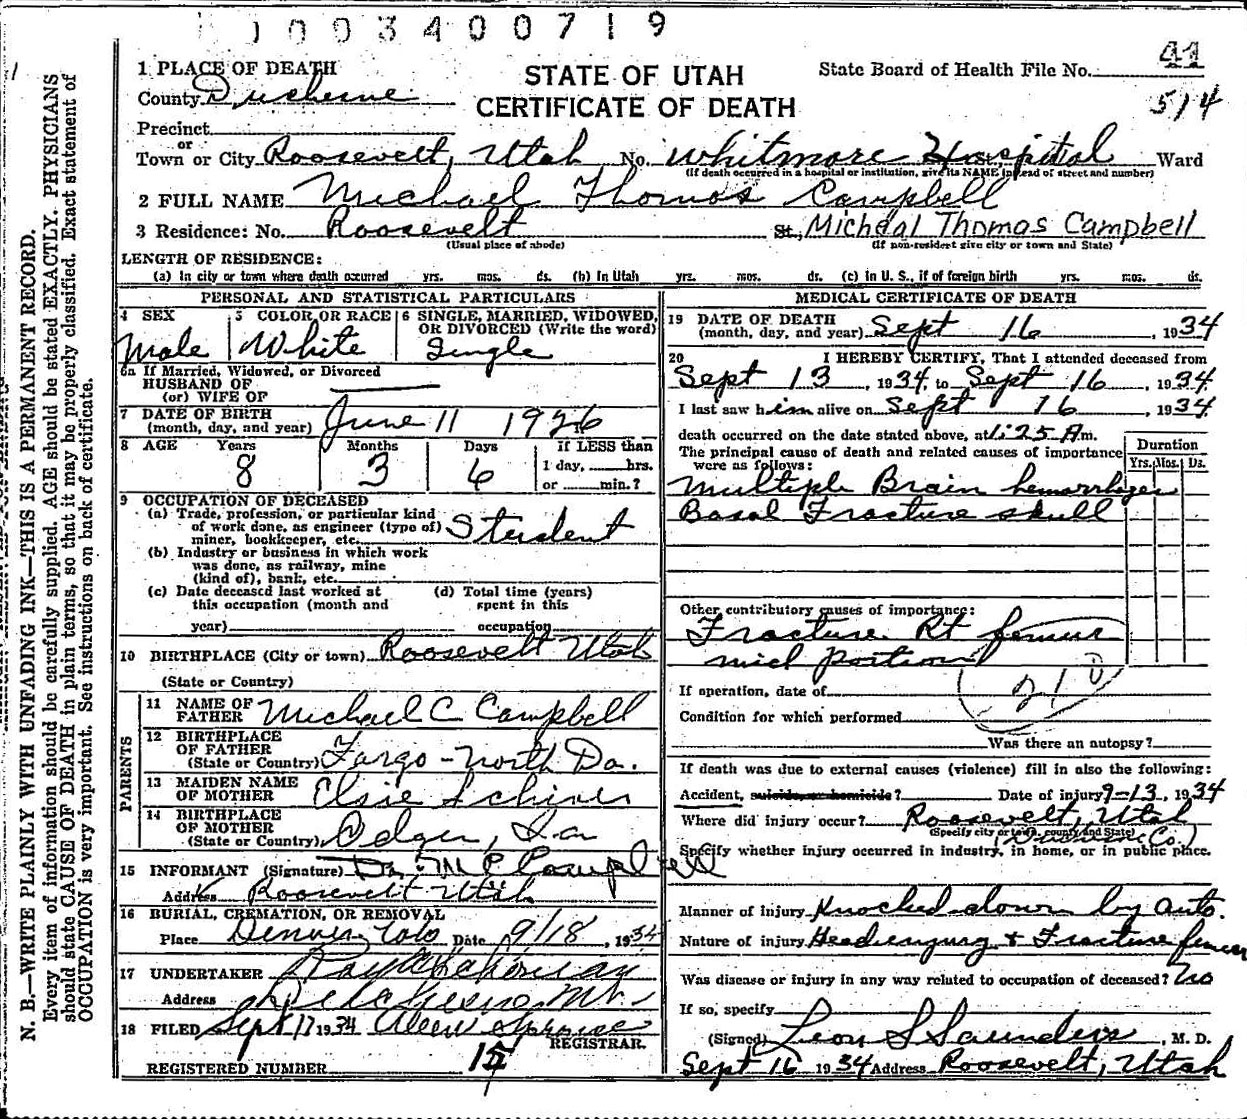 1003400719
1 PLACE OF DEATH
STATE OF UTAH
CERTIFICATE OF DEATH
State Board of Health File No. 41
514
County Duchesne
Precinct
or
Town or City Roosevelt, Utah No. Whitmore Hospital Ward
(If death occurred in a hospital or institution, give its NAME instead of street and number)
2 FULL NAME Michael Thomas Campbell
3 Residence: No. Roosevelt St., Micheal Thomas Campbell
(Usual place of abode) (If non-resident give city or town and State)
LENGTH OF RESIDENCE:
(a) In city or town where death occurred yrs. mos. ds. (b) In Utah yrs. mos. ds. (c) in U. S., if of foreign birth yrs. mos. ds.
PERSONAL AND STATISTICAL PARTICULARS
4 SEX Male
5 COLOR OR RACE White
6 SINGLE, MARRIED, WIDOWED, OR DIVORCED (Write the word) Single
6a If Married, Widowed, or Divorced
HUSBAND OF
(or) WIFE OF
7 DATE OF BIRTH
(month, day, and year) June 11 1926
8 AGE Years Months Days If LESS than
8 3 6 1 day, hrs.
or min.?
9 OCCUPATION OF DECEASED
(a) Trade, profession, or particular kind
of work done, as engineer (type of)
miner, bookkeeper, etc. Student
(b) Industry or business in which work
was done, as railway, mine
(kind of), bank, etc.
(c) Date deceased last worked at
this occupation (month and
year)
(d) Total time (years)
spent in this
occupation
10 BIRTHPLACE (City or town) Roosevelt Utah
(State or Country)
PARENTS
11 NAME OF
FATHER Michael C Campbell
12 BIRTHPLACE
OF FATHER
(State or Country) Fargo - North Da.
13 MAIDEN NAME
OF MOTHER Elsie
14 BIRTHPLACE
OF MOTHER
(State or Country)
15 INFORMANT (Signature) Campbell
Address Roosevelt Utah
16 BURIAL, CREMATION, OR REMOVAL
Place Denver, Colo Date 9/18, 1934
17 UNDERTAKER
Address
18 FILED Sept 17 1934
REGISTRAR.
REGISTERED NUMBER 15
MEDICAL CERTIFICATE OF DEATH
19 DATE OF DEATH
(month, day, and year) Sept 16, 1934
20 I HEREBY CERTIFY, That I attended deceased from
Sept 13, 1934, to Sept 16, 1934.
I last saw him alive on Sept 16, 1934
death occurred on the date stated above, at 1:25 A m.
The principal cause of death and related causes of importance
were as follows:
Duration
Yrs. Mos. Ds.
Multiple Brain hemorrhages
Basal Fracture skull
Other contributory causes of importance:
Fracture Rt femur
mid portion
210
If operation, date of
Condition for which performed
Was there an autopsy?
If death was due to external causes (violence) fill in also the following:
Accident, suicide, or homicide? Date of injury 9-13, 1934
Where did injury occur? Roosevelt, Utah
(Specify city or town, county and State)
Specify whether injury occurred in industry, in home, or in public place.
Manner of injury Knocked down by auto.
Nature of injury Head injury + Fracture femur
Was disease or injury in any way related to occupation of deceased? No
If so, specify
(Signed) Leon S Saunders, M. D.
Sept 16 1934 Address Roosevelt, Utah
N. B.—WRITE PLAINLY WITH UNFADING INK—THIS IS A PERMANENT RECORD.
Every item of information should be carefully supplied. AGE should be stated EXACTLY. PHYSICIANS
should state CAUSE OF DEATH in plain terms, so that it may be properly classified. Exact statement of
OCCUPATION is very important. See instructions on back of certificate.